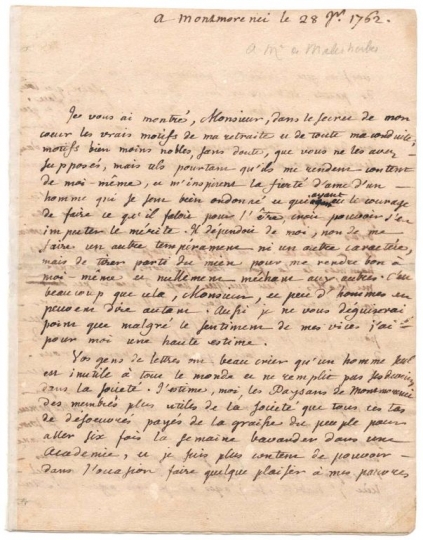 A Montmorenci le 28 Jr. 1762.
a Mr. de Malesherbes
Je vous ai montrés, Monsieur, dans le secret de mon
coeur les vrais motifs de ma retraite et de toute ma conduite;
motifs bien moins nobles, sans doute, que vous ne les avez
supposés, mais tels pourtant qu'ils me rendent content
de moi-même, et m'inspirent la fierté d'ame d'un
homme qui se sent bien ordonné, et qui ayant eu le courage
de faire ce qu'il faloit pour l'être, croit pouvoir s'en
imputer le mérite. Il dépendoit de moi, non de me
faire un autre tempérament ni un autre caractére,
mais de tirer parti du mien pour me rendre bon à
moi-même et nullement méchant aux autres. C'est
beaucoup que cela, Monsieur, et peu d'hommes en
peuvent dire autant. Aussi je ne vous déguiserai
point que malgré le sentiment de mes vices j'ai
pour moi une haute estime.
Vos gens de lettres ont beau crier qu'un homme seul
est inutile à tout le monde et ne remplit pas ses devoirs
dans la societé. J'estime, moi, les Paysans de Montmorenci
des membres plus utiles de la societé que tous ces tas
de desoeuvrés payés de la graisse du peuple pour
aller six fois la semaine bavarder dans une
Academie, et je suis plus content de pouvoir
dans l'occasion faire quelque plaisir à mes pauvres